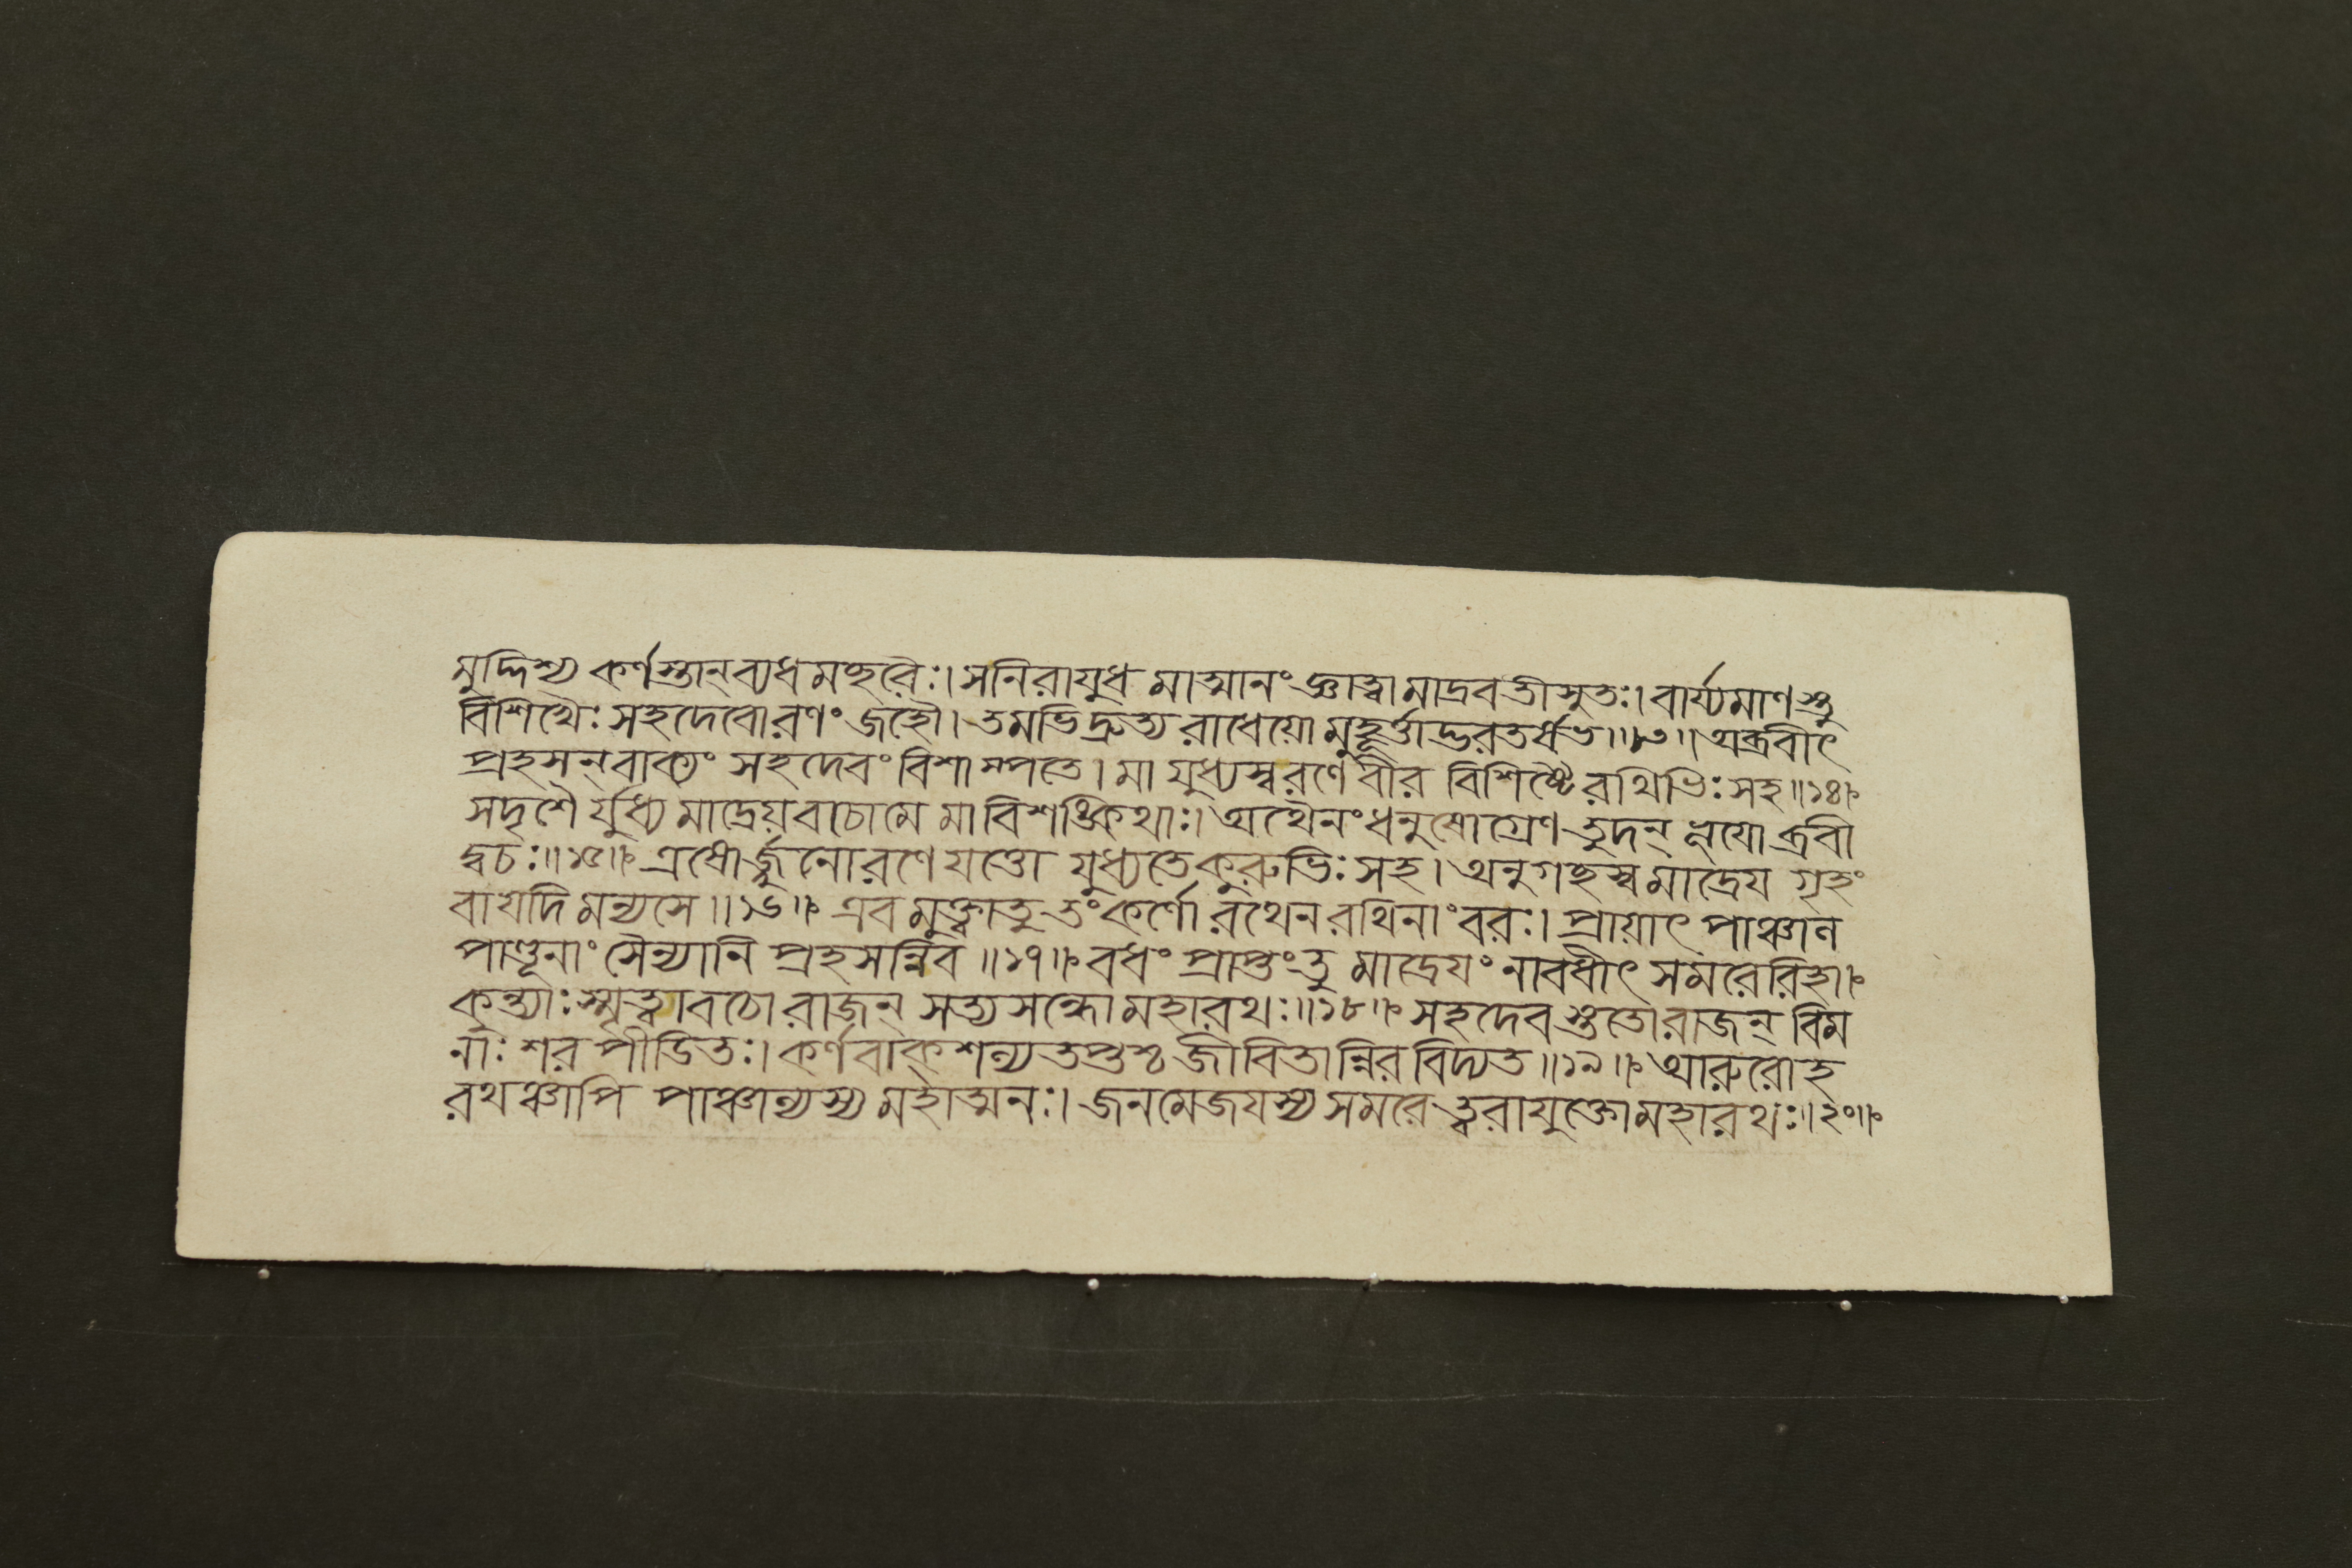 মুদ্দিশ্য কর্ণস্তান্ ব্যধমচ্ছরৈঃ। স নিরাযুধ মাত্মানং জ্ঞাত্বা মাদ্রবতীসুতঃ। বার্য্যমাণস্তু
বিশিখৈঃ সহদেবোরণং জহৌ। তমভিদ্রুত্য রাধেয়ো মুহূর্ত্তাদ্ভরতর্ষভ॥১৩॥ অব্রবীৎ
প্রহসন্ বাক্যং সহদেবং বিশাম্পতে। মা যুধ্যস্ব রণে বীর বিশিষ্টৈ রথিভিঃ সহ॥১৪॥
সদৃশৈ র্যুধ্য মাদ্রেয় বচোমে মা বিশঙ্কিথাঃ। অথৈনং ধনুষোগ্রেণ তুদন্ ভূযোব্রবী
দ্বচঃ॥১৫॥ এষোর্জ্জুনোরণে যত্তো যুধ্যতে কুরুভিঃ সহ। অনুগচ্ছস্ব মাদ্রেয গৃহং
বা যদি মন্যসে॥১৬॥ এব মুক্ত্বা তু তং কর্ণো রথেন রথিনাং বরঃ। প্রায়াৎ পাঞ্চাল
পাণ্ডূনাং সৈন্যানি প্রহসন্নিব॥১৭॥ বধং প্রাপ্তং তু মাদ্রেযং নাবধীৎ সমরেরিহা।
কুন্ত্যাঃ স্মৃত্বা বচো রাজন্ সত্যসন্ধো মহারথঃ॥১৮॥ সহদেবস্ততোরাজন্ বিম
নাঃ শর পীডিতঃ। কর্ণবাক্ শল্যতপ্তশ্চ জীবিতান্নিরবিদ্যত॥১৯॥ আরুরোহ
রথঞ্চাপি পাঞ্চাল্যস্য মহাত্মনঃ। জনমেজযস্য সমরে ত্বরাযুক্তো মহারথঃ॥২০॥